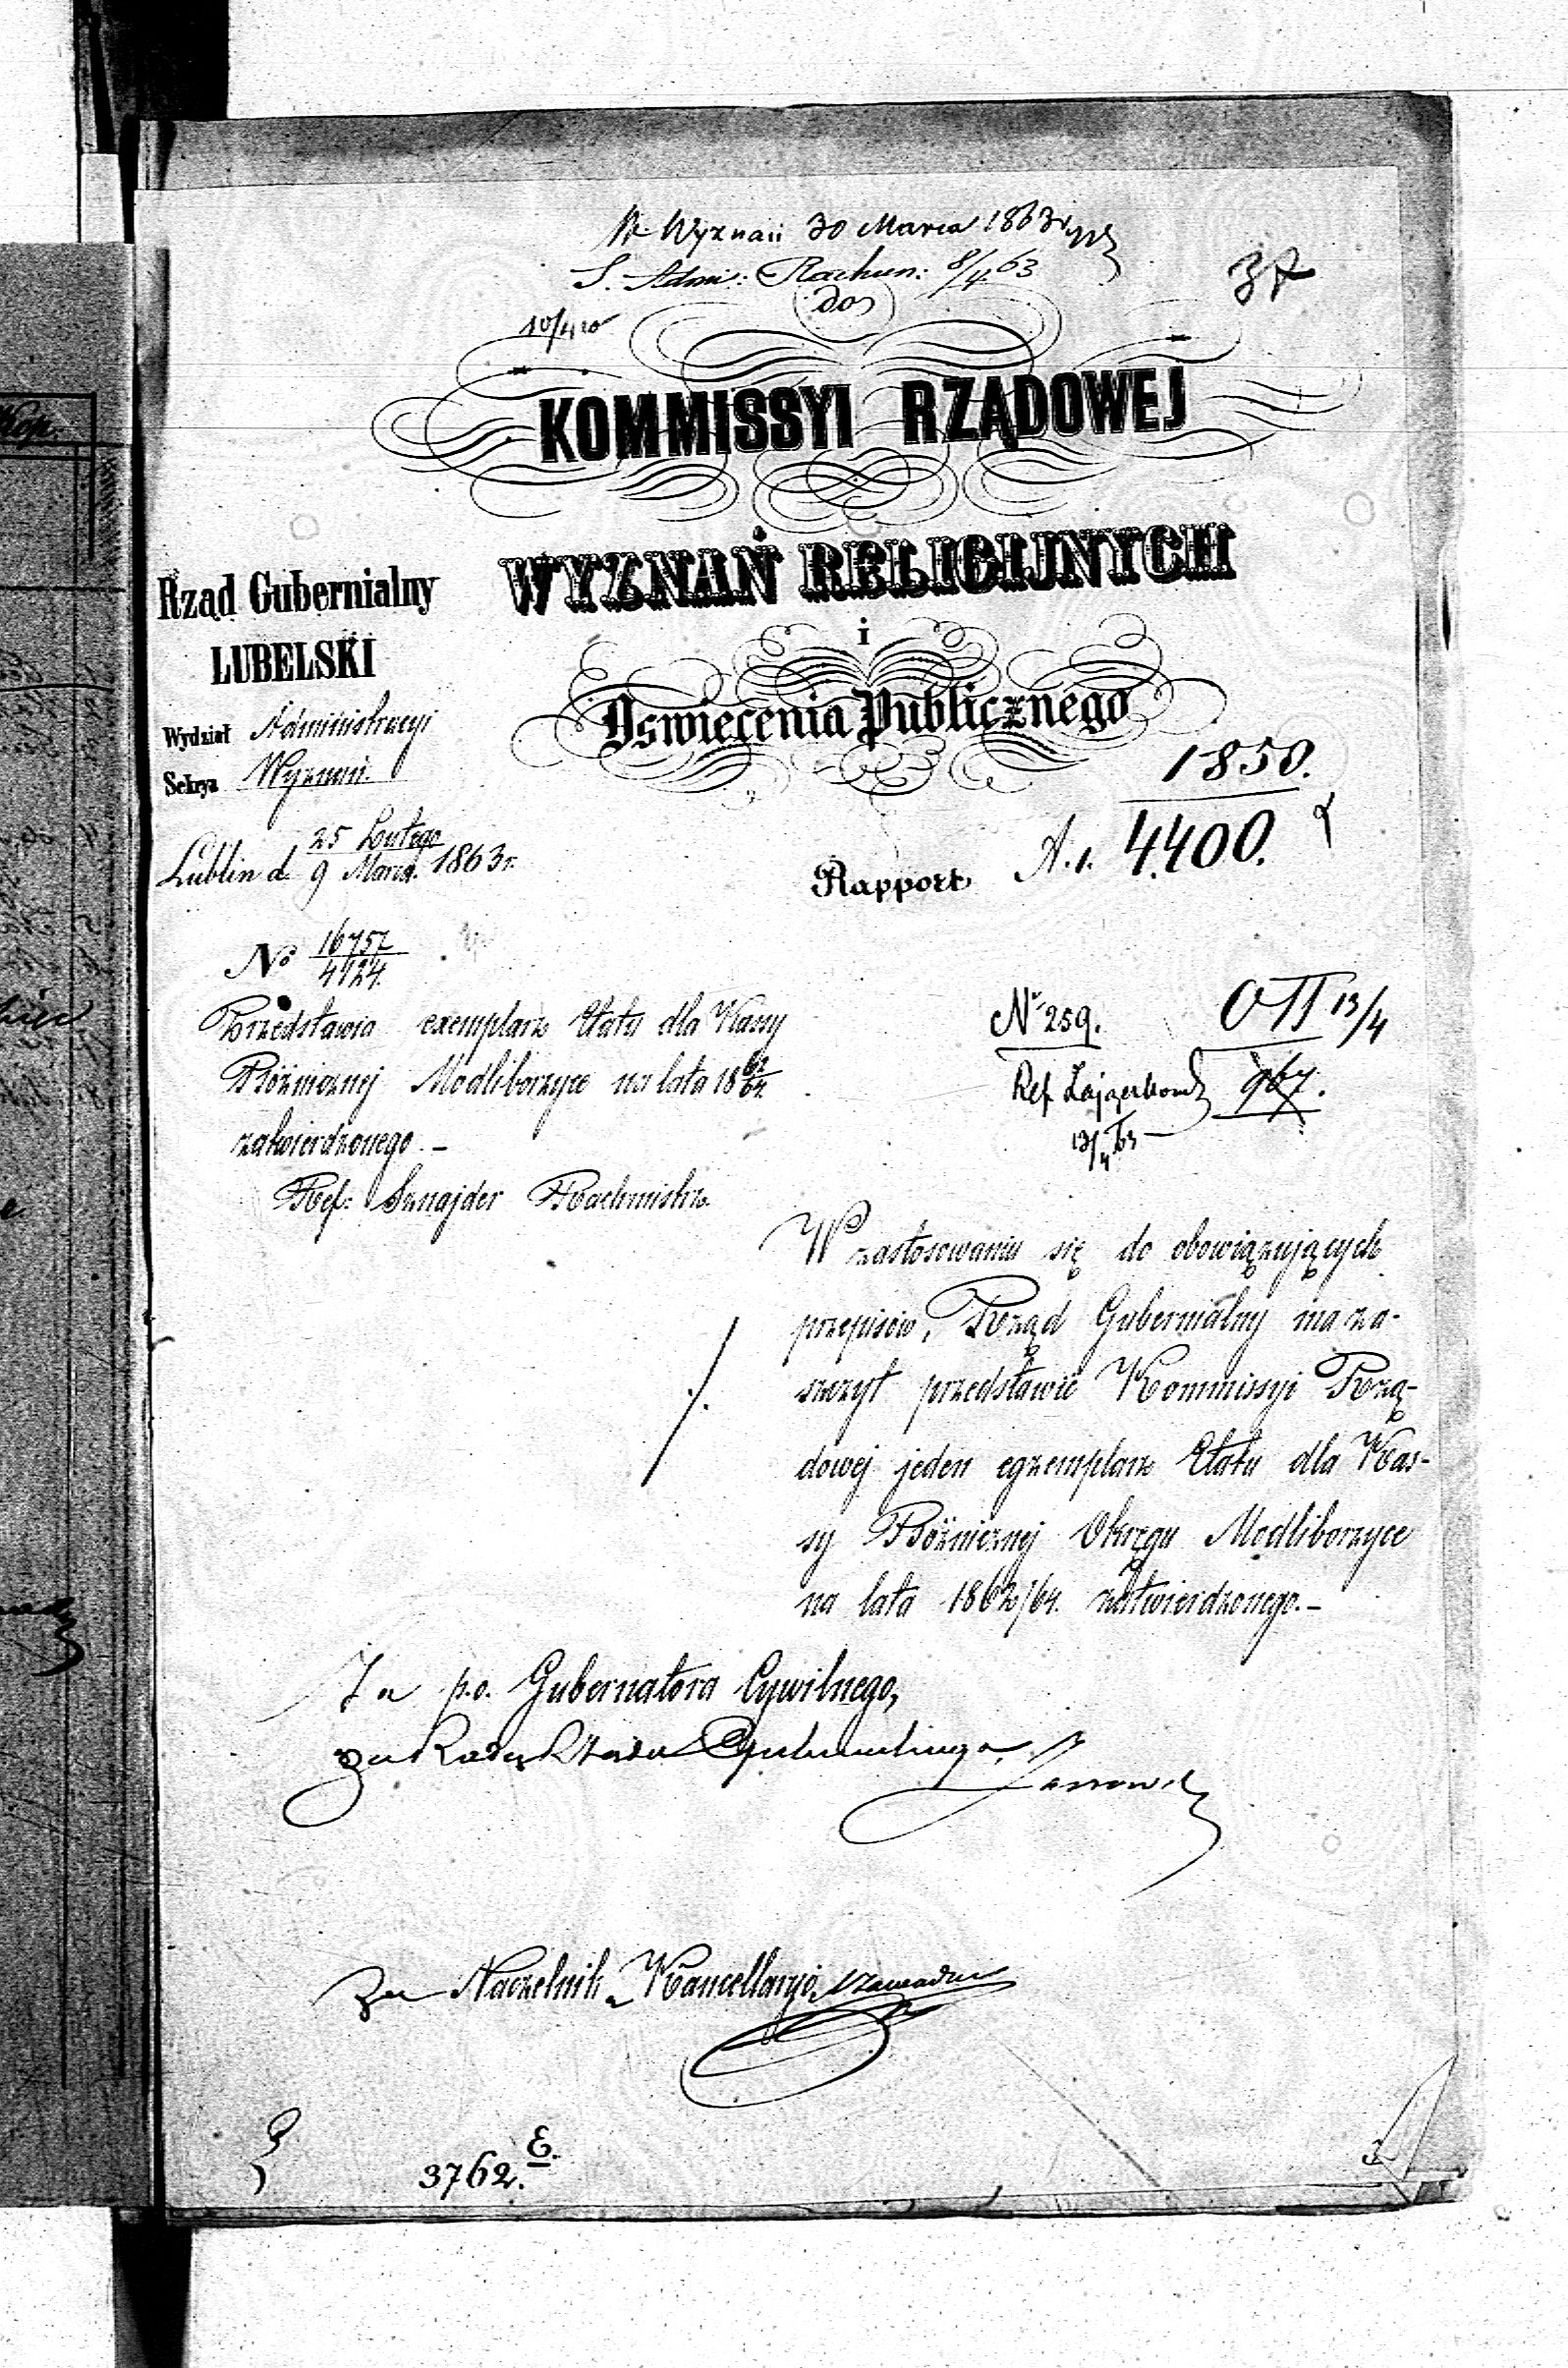 W. Wyznań 30 Marca 1863 r.
S. Adm: Rachun: 8/4 63
37
do
10/4
KOMMISSYI RZĄDOWEJ
WYZNAŃ RELIGIJNYCH
i
Oswiecenia Publicznego
Rząd Gubernialny
LUBELSKI
Wydział Administracyi
Sekcya Wyznań.
Lublin d. 25 Lutego / 9 Marca 1863 r.
1850.
A. 1. 4400.
Rapport
No 16757 / 4724.
Przedstawia exemplarz Etatu dla Kassy
Bóżnicznej Modliborzyce na lata 18 62/64.
zatwierdzonego. –
Ref: Sznajder Rachmistrz.
No 259.
13/4
Ref.
967.
13/4 63
W zastosowaniu się do obowiązujących
przepisów, Rząd Gubernialny ma za-
szczyt przedstawić Kommissyi Rzą-
dowej jeden egzemplarz Etatu dla Kas-
sy Bóżnicznej Okręgu Modliborzyce
na lata 1862/64. zatwierdzonego. –
Za p.o. Gubernatora Cywilnego,
za Radcę
Za Naczelnika Kancellaryi,
3762. E.